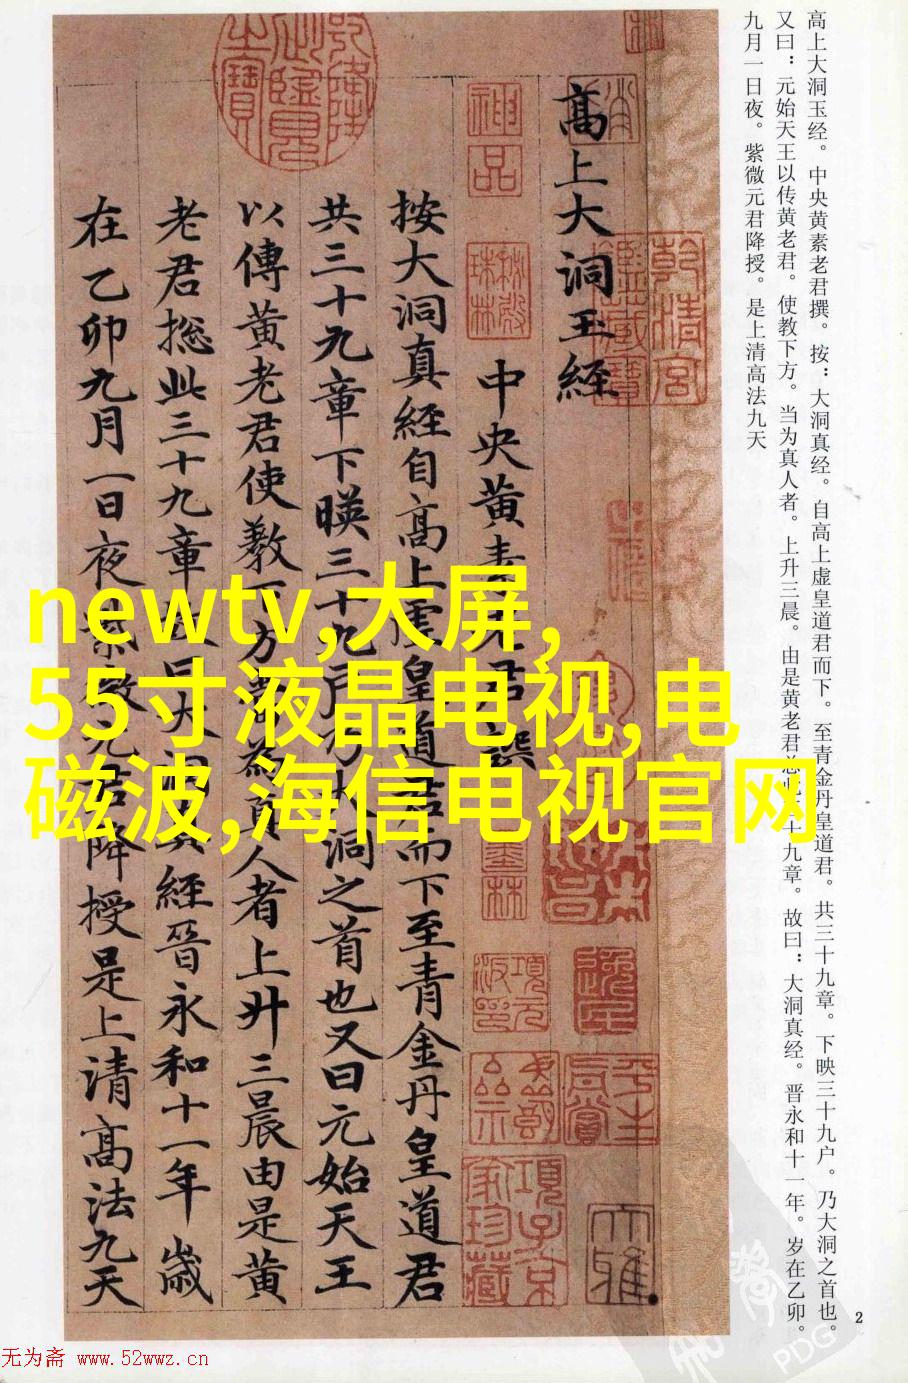 高上大洞玉经。中央黄素老君撰。按：大洞真经。自高上虚皇道君而下。至青金丹皇道君。共三十九章。下映三十九户。乃大洞之首也。
又曰：元始天王以传黄老君。使教下方。当为真人者。上升三晨。由是黄老君总 十九章。故曰：大洞真经。晋永和十一年。岁在乙卯。
九月一日夜。紫微元君降授。是上清高法九天
高上大洞玉經
中央黄素老君撰
按大洞真經自高上虚皇道君而下至青金丹皇道君
共三十九章下暎三十九户乃大洞之首也又曰元始天王
以傳黄老君使教下方當為真人者上升三晨由是黄
老君摠此三十九章故曰大洞真經晉永和十一年歲
在乙卯九月一日夜紫微元君降授是上清高法九天
神品
乾清宫鑑藏寶
墨林
項子京家珍藏
newtv,大屏,
55寸液晶电视,电
磁波,海信电视官网
2
PDG
无为斋 www.52wwz.cn